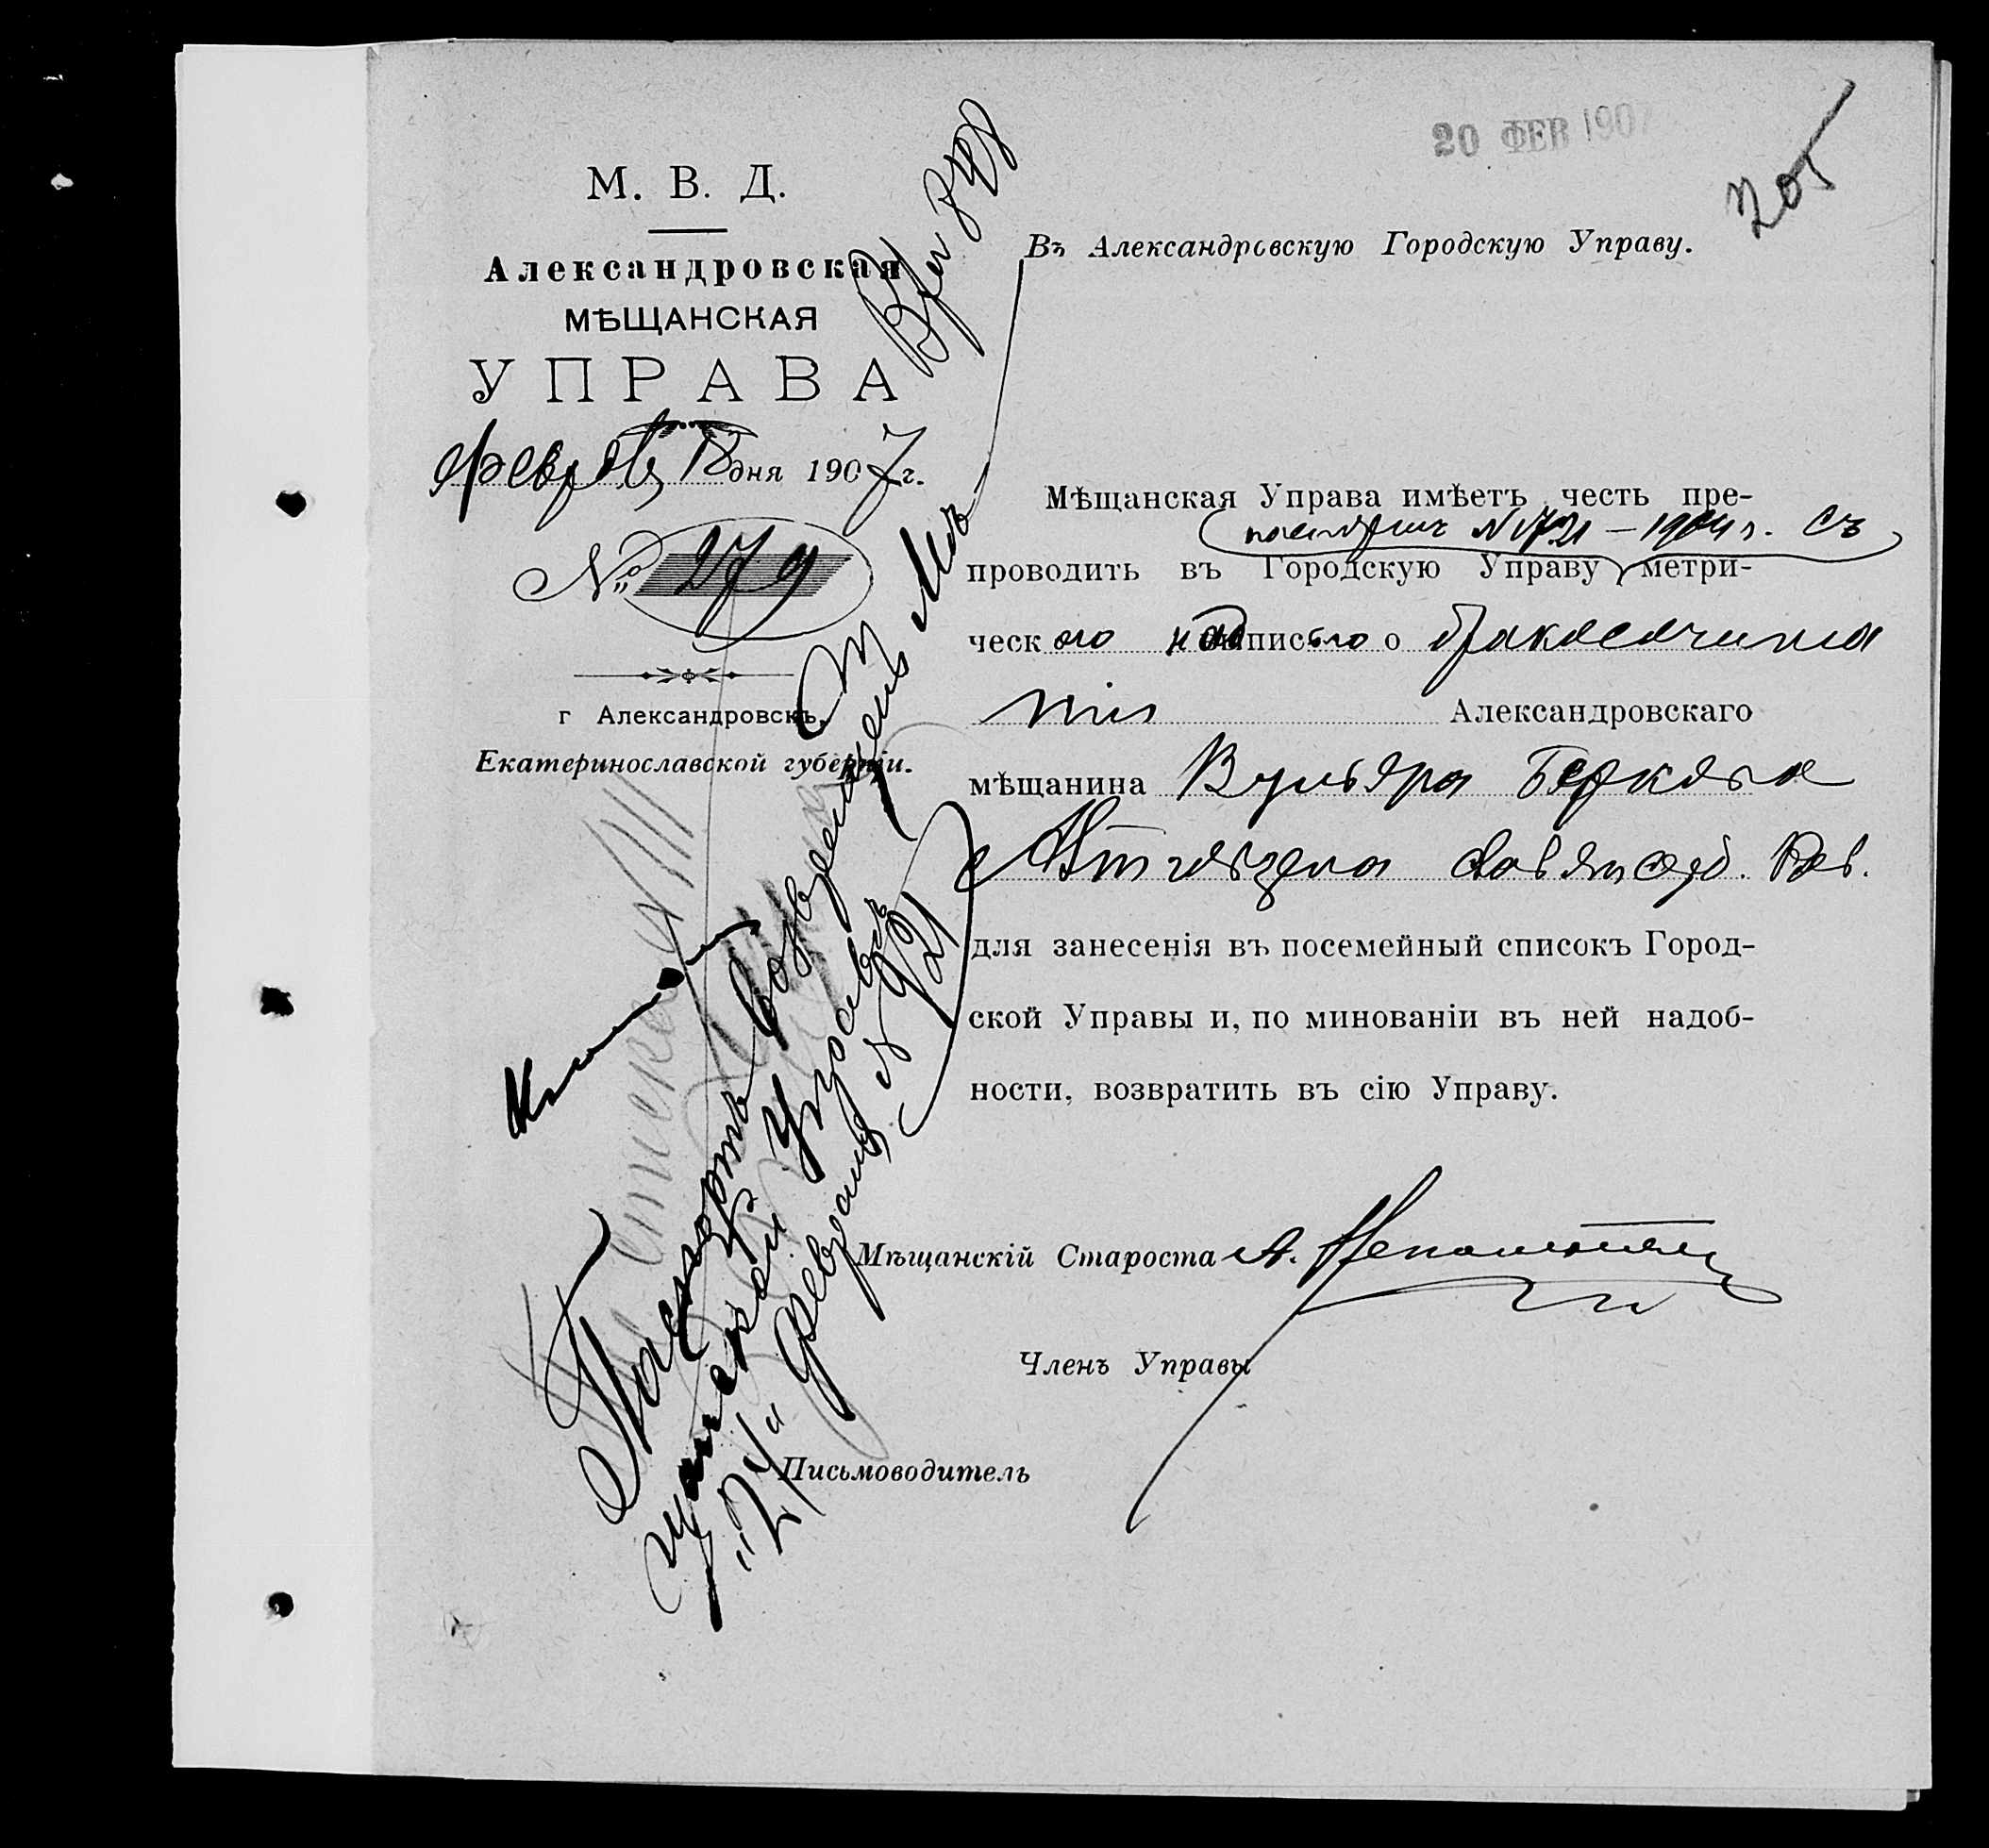 20 ФЕВ 1907
205
М. В. Д.
Александровская
МѢЩАНСКАЯ
УПРАВА
18 дня 1907 г.
№ 279
г Александровскъ,
Екатеринославской губерніи.
Въ Александровскую Городскую Управу.
Мѣщанская Управа имѣетъ честь пре-
№ 1721 – 1904 г. съ
проводить въ Городскую Управу метри-
ческ ого надписью о бракосочета
нiи Александровскаго
мѣщанина Вульфа Беркова
для занесенія въ посемейный списокъ Город-
ской Управы и, по минованіи въ ней надоб-
ности, возвратить въ сію Управу.
Мѣщанскій Староста А.
Членъ Управы
Письмоводитель
Паспортъ возвращенъ Мѣ-
щанской Управѣ
"24" февраля № 921